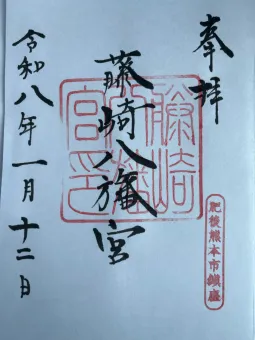 奉拝
藤崎八旛宮
令和八年一月十二日
藤崎八旛宮印
肥後熊本市鎮座